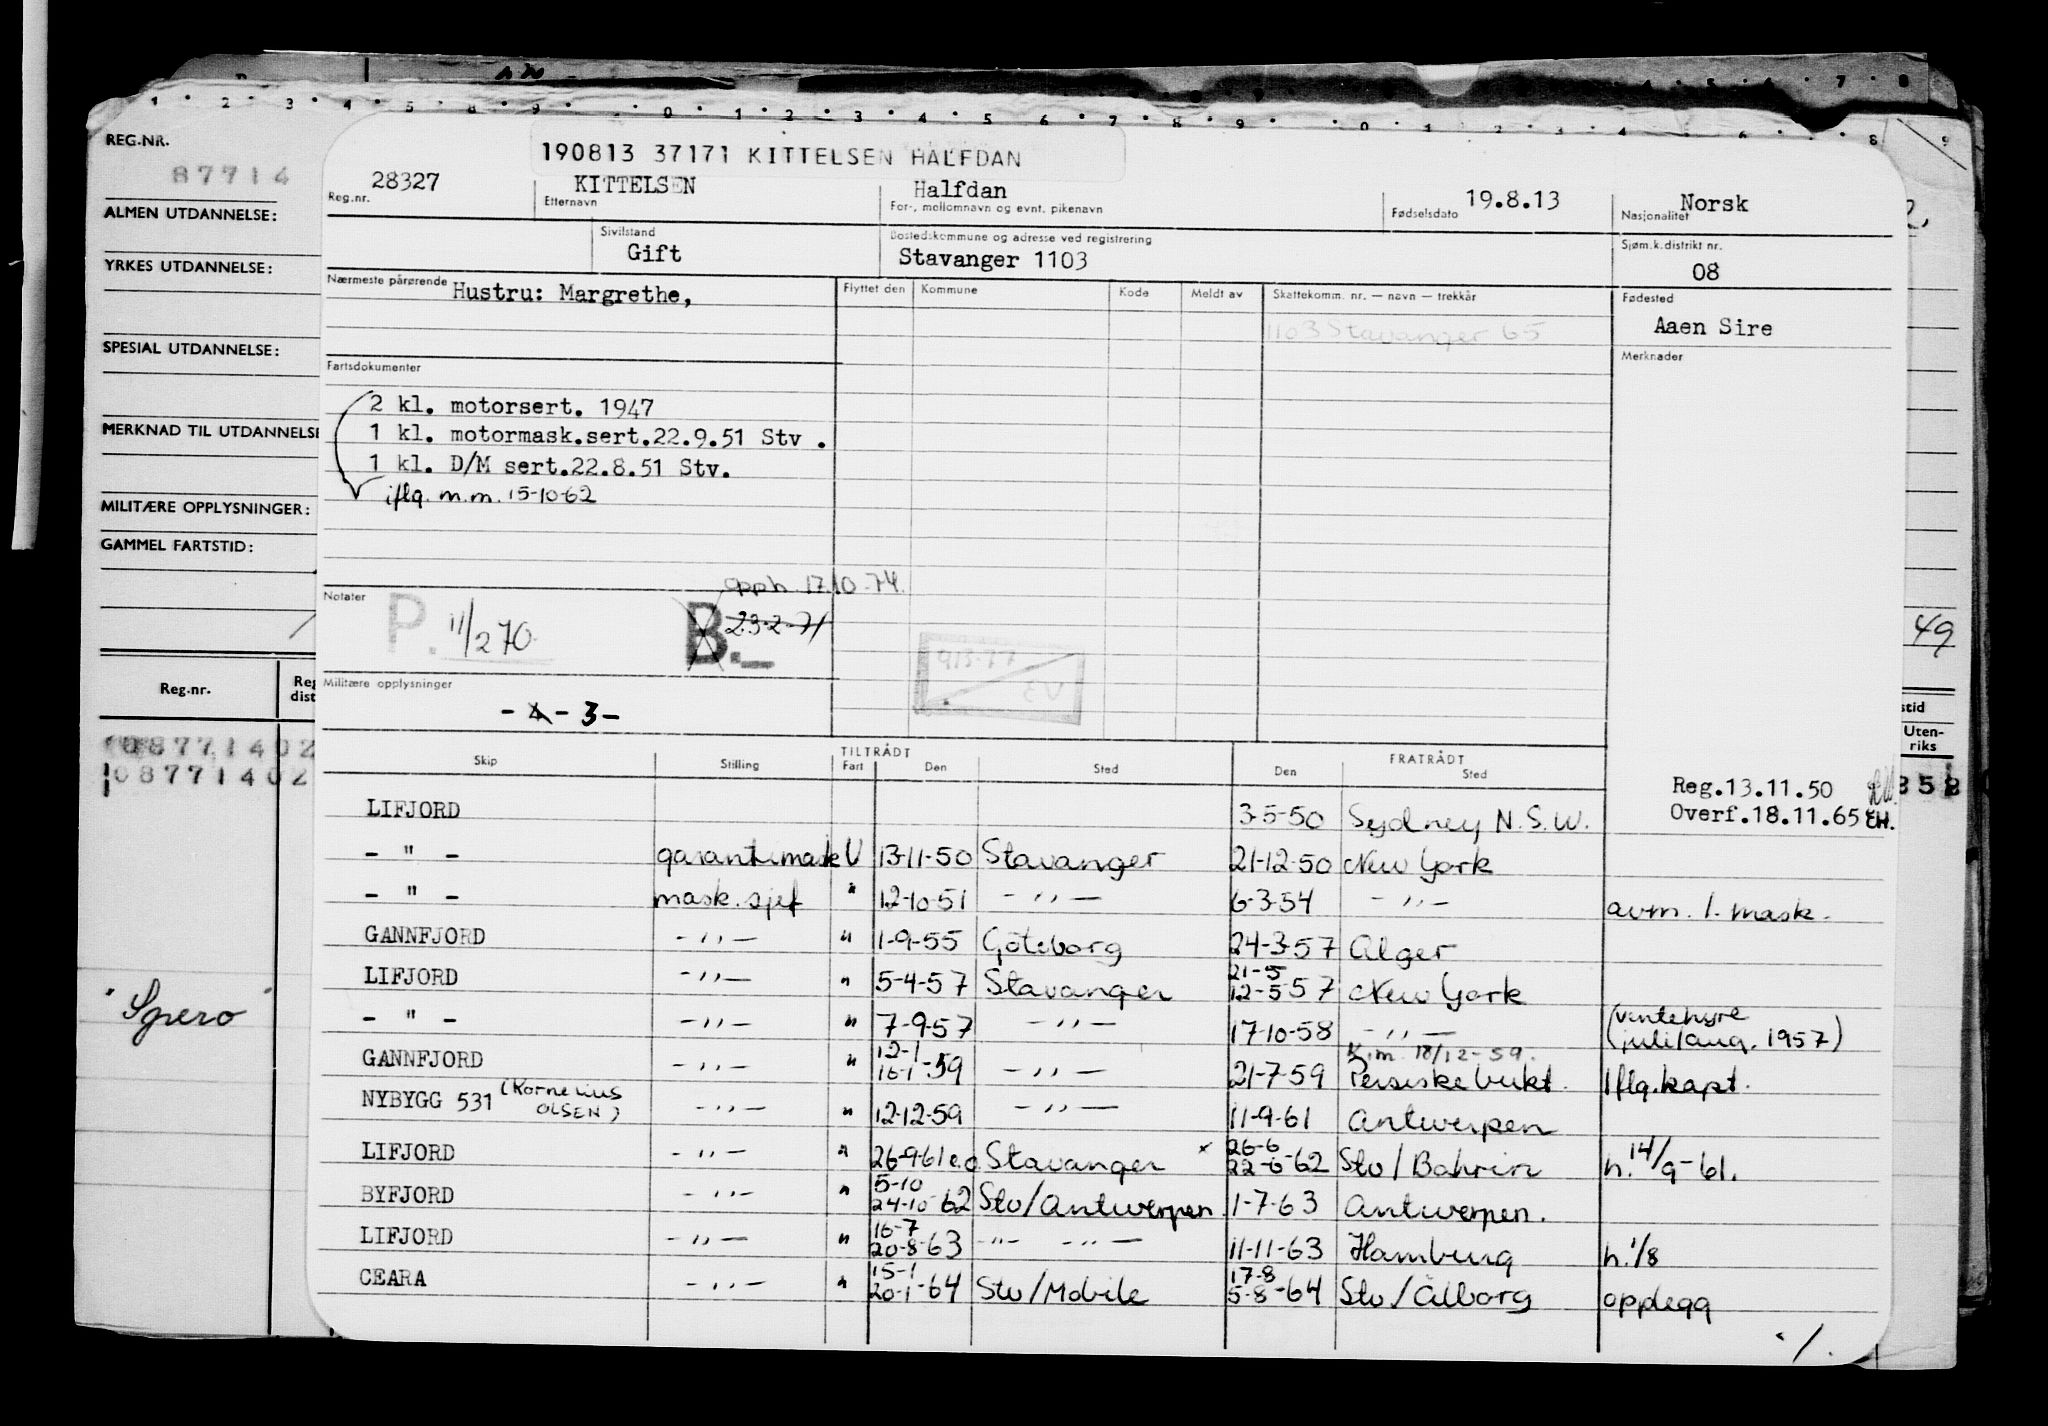 1 2 3 4 5 8 9 0 1 2 3 4 5 6 7 8 9 0 1 2 3 4 6 8 9
REG.NR.
87714
ALMEN UTDANNELSE:
YRKES UTDANNELSE:
SPESIAL UTDANNELSE:
MERKNAD TIL UTDANNELSE
MILITÆRE OPPLYSNINGER:
GAMMEL FARTSTID:
Reg.nr.
08771402
08771402
"Spero"
190813 37171 KITTELSEN HALFDAN
28327 KITTELSEN Halfdan 19.8.13 Norsk
Reg.nr. Etternavn For-, mellomnavn og evnt. pikenavn Fødselsdato Nasjonalitet
Sivilstand Bostedskommune og adresse ved registrering Sjøm.k.distrikt nr.
Gift Stavanger 1103 08
Nærmeste pårørende Hustru: Margrethe, Flyttet den Kommune Kode Meldt av Skattekomm. nr. — navn — trekkår Fødested
1103 Stavanger 65 Aaen Sire
Merknader
Fartsdokumenter
2 kl. motorsert. 1947
1 kl. motormask.sert.22.9.51 Stv .
1 kl. D/M sert.22.8.51 Stv.
iflg. m.m. 15-10-62
opph. 17.10.74.
Notater P. 11/270 B.— 23-2-71
Militære opplysninger
- 4 - 3 -
49
TILTRÅDT FRATRÅDT
Skip Stilling Fart Den Sted Den Sted
Uten-
riks
Reg.13.11.50
Overf.18.11.65 EH.
358
LIFJORD 3-5-50 Sydney N.S.W.
- " - garantimask U 13-11-50 Stavanger 21-12-50 New York
- " - mask. sjef " 12-10-51 - " - 6-3-54 - " - avm. 1. mask.
GANNFJORD - " - " 1-9-55 Göteborg 24-3-57 Alger
LIFJORD - " - " 5-4-57 Stavanger 21-5 12-5-57 New York
- " - - " - " 7-9-57 - " - 17-10-58 - " - (ventehyre juli/aug. 1957)
GANNFJORD - " - " 12-1 16-1-59 - " - 21-7-59 K.m. 18/12-59. Persiske bukt. Iflg. kapt.
NYBYGG 531 (Kornelius OLSEN) - " - " 12-12-59 - " - 11-9-61 Antwerpen
LIFJORD - " - " 26-9-61 e.o. Stavanger × 26-6 22-6-62 Stv/Bahrin h. 14/9-61.
BYFJORD - " - " 5-10 24-10-62 Stv/Antwerpen 1-7-63 Antwerpen.
LIFJORD - " - " 16-7 20-8-63 - " - - " - 11-11-63 Hamburg h. 1/8
CEARA - " - " 15-1 20-1-64 Stv/Mobile 17-8 5-8-64 Stv/Ålborg opplegg